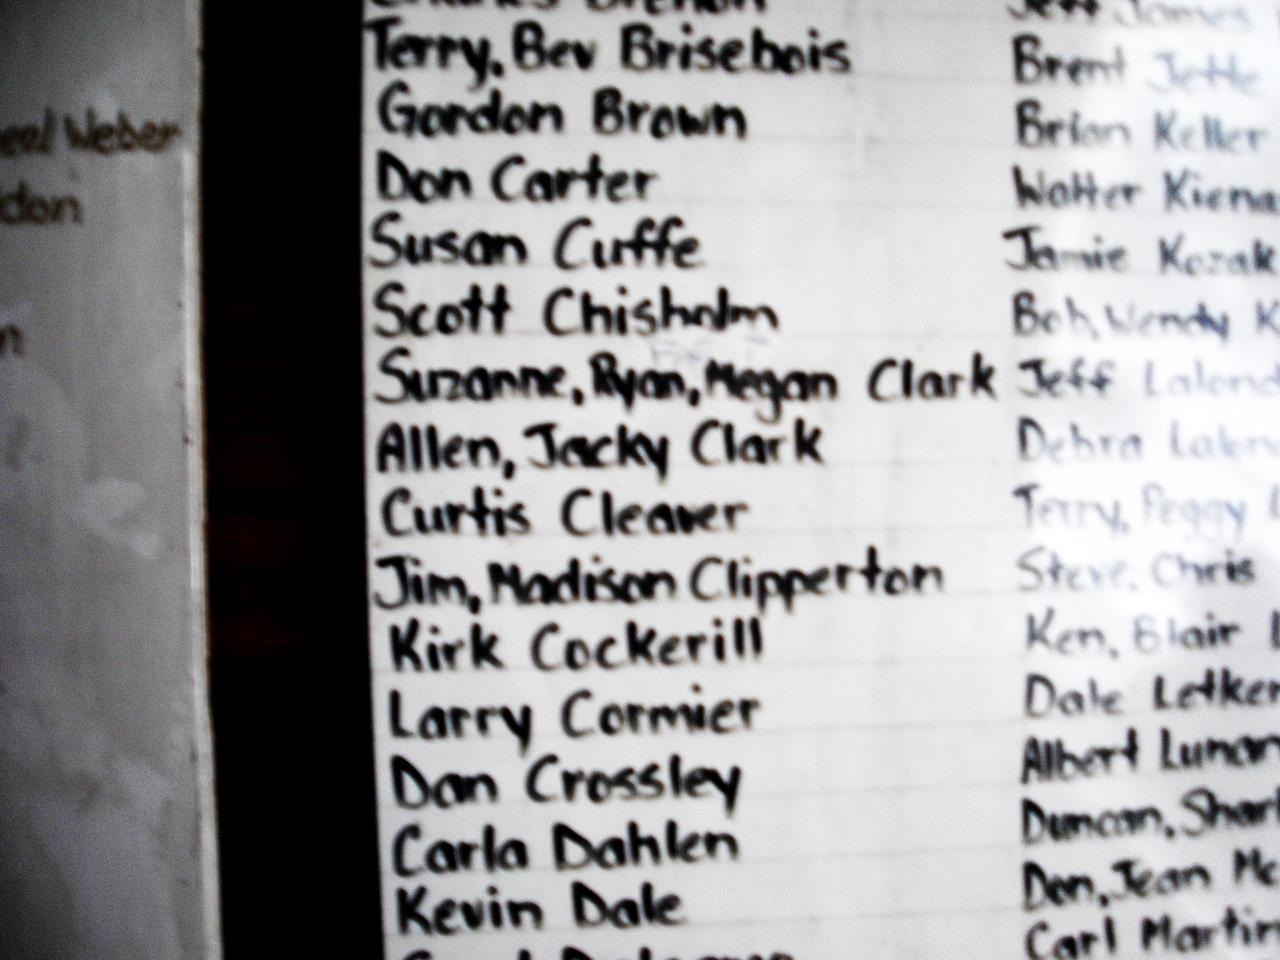 Weber
Terry, Bev Brisebois
Gordon Brown
Don Carter
Susan Cuffe
Scott Chisholm
Suzanne, Ryan, Megan Clark
Allen, Jacky Clark
Curtis Cleaver
Jim, Madison Clipperton
Kirk Cockerill
Larry Cormier
Dan Crossley
Carla Dahlen
Kevin Dale
Jeff James
Brent Jette
Brian Keller
Walter
Jamie Kozak
Bob, Wendy K
Jeff
Debra
Terry, Peggy
Steve, Chris
Ken, Blair
Dale
Albert
Duncan,
Don, Jean Mc
Carl